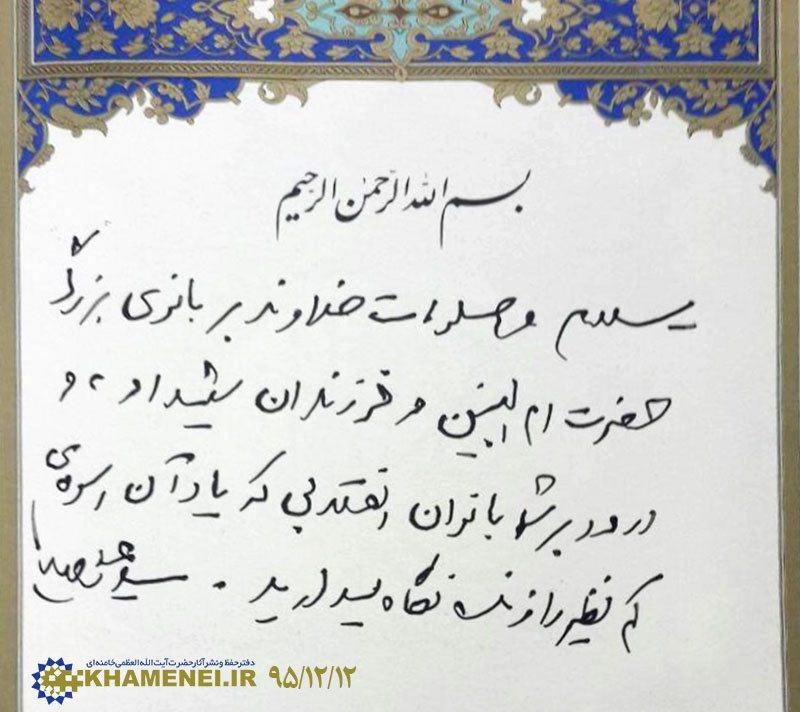 بسم الله الرحمن الرحیم
سلام و صلوات خداوند بر بانوی بزرگ
حضرت ام البنین و فرزندان شهید او، و
درود بر شما بانوان انقلابی که یاد آن اسوه‌ی
کم نظیر را زنده نگاه میدارید.
دفتر حفظ و نشر آثار حضرت آیت الله العظمی خامنه‌ای
KHAMENEI.IR ۹۵/۱۲/۱۲